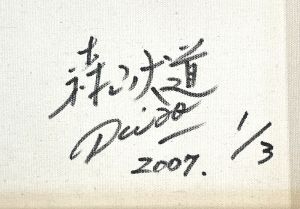 森山大道
Daido
2007. 1/3